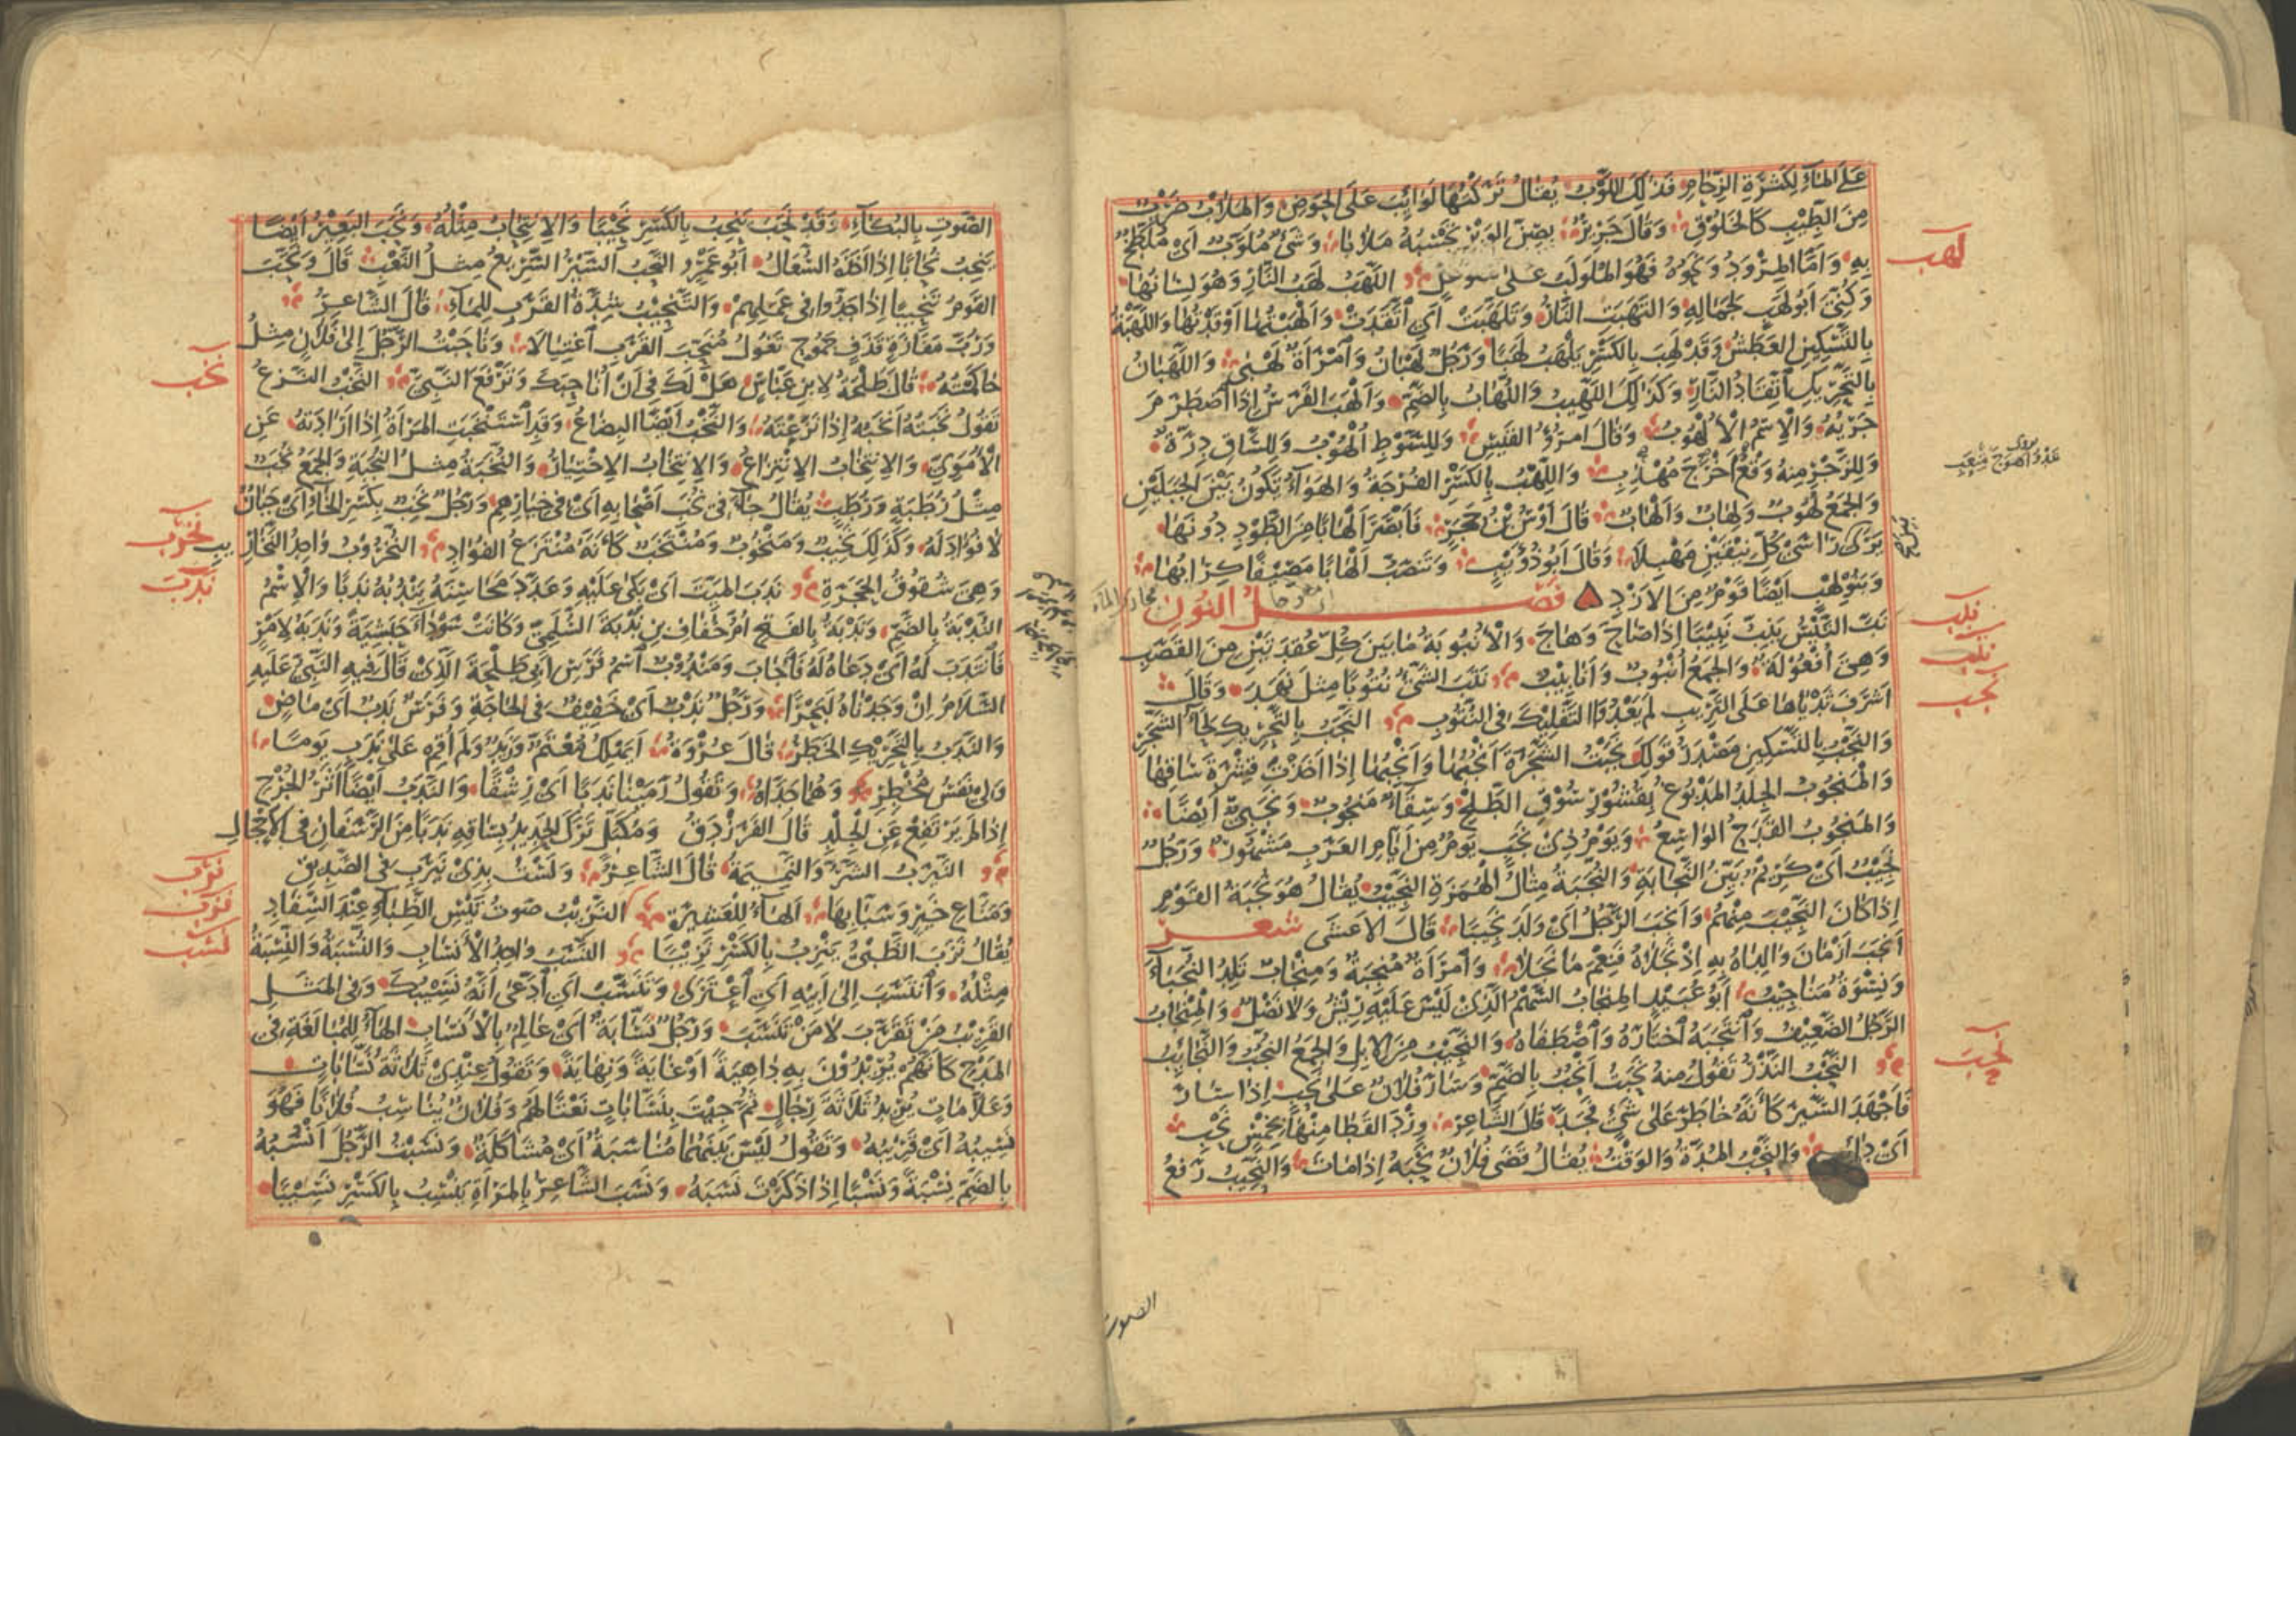 على الماء لكثرة الزحام فذلك اللوب يقال تركتها لوائب على الحوض والملاب ضرب
من الطيب كالخلوق وقال جرير بصن الوبر تحسبه ملابا وشئ ملوب اى ملطخ
به واما المرود ونحوه فهو الملولب على اللهب لهب النار وهو لسانها
وكنى ابو لهب لجماله والتهبت النار وتلهبت اى اتقدت والهبتها اوقدتها واللهبة
بالتسكين العطش وقد لهب بالكسر يلهب لهبا ورجل لهبان وامرأة لهبى واللهبان
بالتحريك اتقاد النار وكذلك اللهيب واللهاب بالضم والهب الفرس اذا اضطرم
جريه والاسم الالهوب وقال امرؤ القيس وللسوط الهوب وللساق درة
وللزجر منه وقع اخرج مهذب واللهب بالكسر الفرجة والهواء يكون بين الجبلين
والجمع لهوب ولهاب والهاب قال اوس بن حجر فابصر الهابا من الطود دونها
يرى بين راسى كل نيقين مهبلا وقال ابو ذؤيب وتنصب الهابا مصيفا كرابها
وبنو لهب ايضا قوم من الازد فصل النون
نب التيس ينب نبيبا اذا صاح وهاج والانبوبة ما بين كل عقدتين من القصب
وهى افعولة والجمع انبوب وانابيب نتب الشئ نتوبا مثل نهد وقال
اشرف ثدياها على التريب لم يعدوا التفليك فى النتوب النجب بالتحريك لحاء الشجر
والنجب بالتسكين مصدر قولك نجبت الشجرة انجبها وانجبها اذا اخذت قشرة ساقها
والمنجوب الجلد المدبوغ بقشور سوق الطلح وسقاء منجوب ونجبى ايضا
والمنجوب القدح الواسع ويوم ذى نجب يوم من ايام العرب مشهور ورجل
نجيب اى كريم بين النجابة والنجبة مثال الهمزة النجيب يقال هو نجبة القوم
اذا كان النجيب منهم وانجب الرجل اى ولد نجيبا قال الاعشى شعر
انجب ازمان والداه به اذ نجلاه فنعم ما نجلا وامرأة منجبة ومنجاب تلد النجباء
ونسوة مناجيب ابو عبيد المنجاب السهم الذى ليس عليه ريش ولا نصل والمنجاب
الرجل الضعيف وانتجبه اختاره واصطفاه والنجيب من الابل والجمع النجب والنجائب
النحب النذر تقول منه نحبت انحب بالضم وسار فلان على نحب اذا سار
فاجهد السير كأنه خاطر على شئ فجد قال الشاعر ورد القطا منها بخمس نحب
اى دائب والنحب المدة والوقت يقال قضى فلان نحبه اذا مات والنحيب رفع
لهب
نبب
نتب
نجب
نحب
الصوت
الصوت بالبكاء وقد نحب ينحب بالكسر نحيبا والانتحاب مثله ونحب البعير ايضا
ينحب نحابا اذا اخذه السعال ابو عمرو النحب السير السريع مثل النعب قال ونحب
القوم تنحيبا اذا جدوا فى عملهم والتنحيب شدة القرب للماء قال الشاعر
ورب مفازة قذف جموح تغول منحب القرب اغتيالا وناحبت الرجل الى فلان مثل
حاكمته قال طلحة لابن عباس هل لك فى ان اناحبك وترفع النبى النخب النزع
تقول نخبته انخبه اذا نزعته والنخب ايضا البضاع وقد استنخبت المرأة اذا ارادته عن
الاموى والانتخاب الانتزاع والانتخاب الاختيار والنخبة مثل النجبة والجمع نخب
مثل رطبة ورطب يقال جاء فى نخب اصحابه اى فى خيارهم ورجل نخب بكسر الخاء اى جبان
لا فؤاد له وكذلك نخيب ومنخوب ومنتخب كأنه منتزع الفؤاد النخروب واحد النخاريب
وهى شقوق الحجرة ندب الميت اى بكى عليه وعدد محاسنه يندبه ندبا والاسم
الندبة بالضم وندبة بالفتح ام خفاف بن ندبة السلمى وكانت سوداء حبشية وندبه لامر
فانتدب له اى دعاه له فاجاب ومندوب اسم فرس ابى طلحة الذى قال فيه النبى عليه
السلام ان وجدناه لبحرا ورجل ندب اى خفيف فى الحاجة وفرس ندب اى ماض
والندب بالتحريك الخطر قال عروة ايهلك معتم وزيد ولم اقم على ندب يوما
ولى نفس مخطر وهما جداه وتقول رمينا ندبا اى رشقا والندب ايضا اثر الجرح
اذا لم يرتفع عن الجلد قال الفرزدق ومكبل ترك الحديد بساقه ندبا من الرسفان فى الاحجال
النيرب الشر والنميمة قال الشاعر ولست بذى نيرب فى الصديق
ومناع خير وسبابها الهاء للعشيرة النزيب صوت تيس الظباء عند السفاد
يقال نزب الظبى ينزب بالكسر نزيبا النسب واحد الانساب والنسبة والنسبة
مثله وانتسب الى ابيه اى اعتزى وتنسب اى ادعى انه نسيبك وفى المثل
القريب من تقرب لا من تنسب ورجل نسابة اى عالم بالانساب الهاء للمبالغة فى
المدح كأنهم يريدون به داهية او غاية ونهاية وتقول عندى ثلاثة نسابات
وعلامات يريد ثلاثة رجال ثم جئت بنسابات نعتا لهم وفلان يناسب فلانا فهو
نسيبه اى قريبه وتقول ليس بينهما مناسبة اى مشاكلة ونسبت الرجل انسبه
بالضم نسبة ونسبا اذا ذكرت نسبه ونسب الشاعر بالمرأة ينسب بالكسر نسيبا
نخب
نخرب
ندب
نرب
نزب
نسب